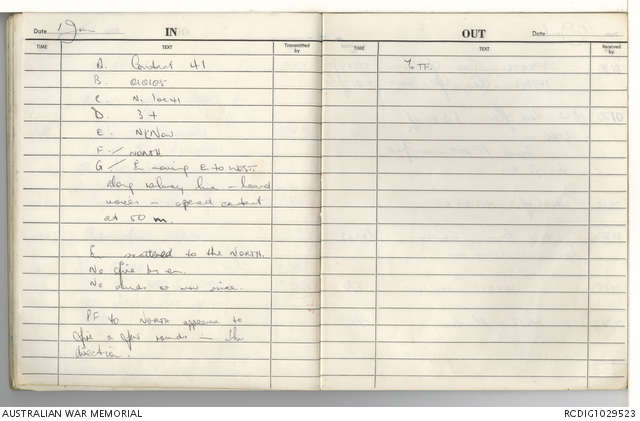 Date 1 Jan
IN
TIME TEXT Transmitted by
A. Contact 41
B. 010105
C. N. loc 41
D. 3 +
E. NK/Now
F. NORTH
G En moving E to WEST.
along railway line - heard
voices - opened contact
at 50 m.
En scattered to the NORTH.
No fire by en.
No sounds or mov since.
PF to NORTH appear to
fire a few rounds in the
direction.
OUT
Date
TIME TEXT Received by
To TF.
AUSTRALIAN WAR MEMORIAL
RCDIG1029523